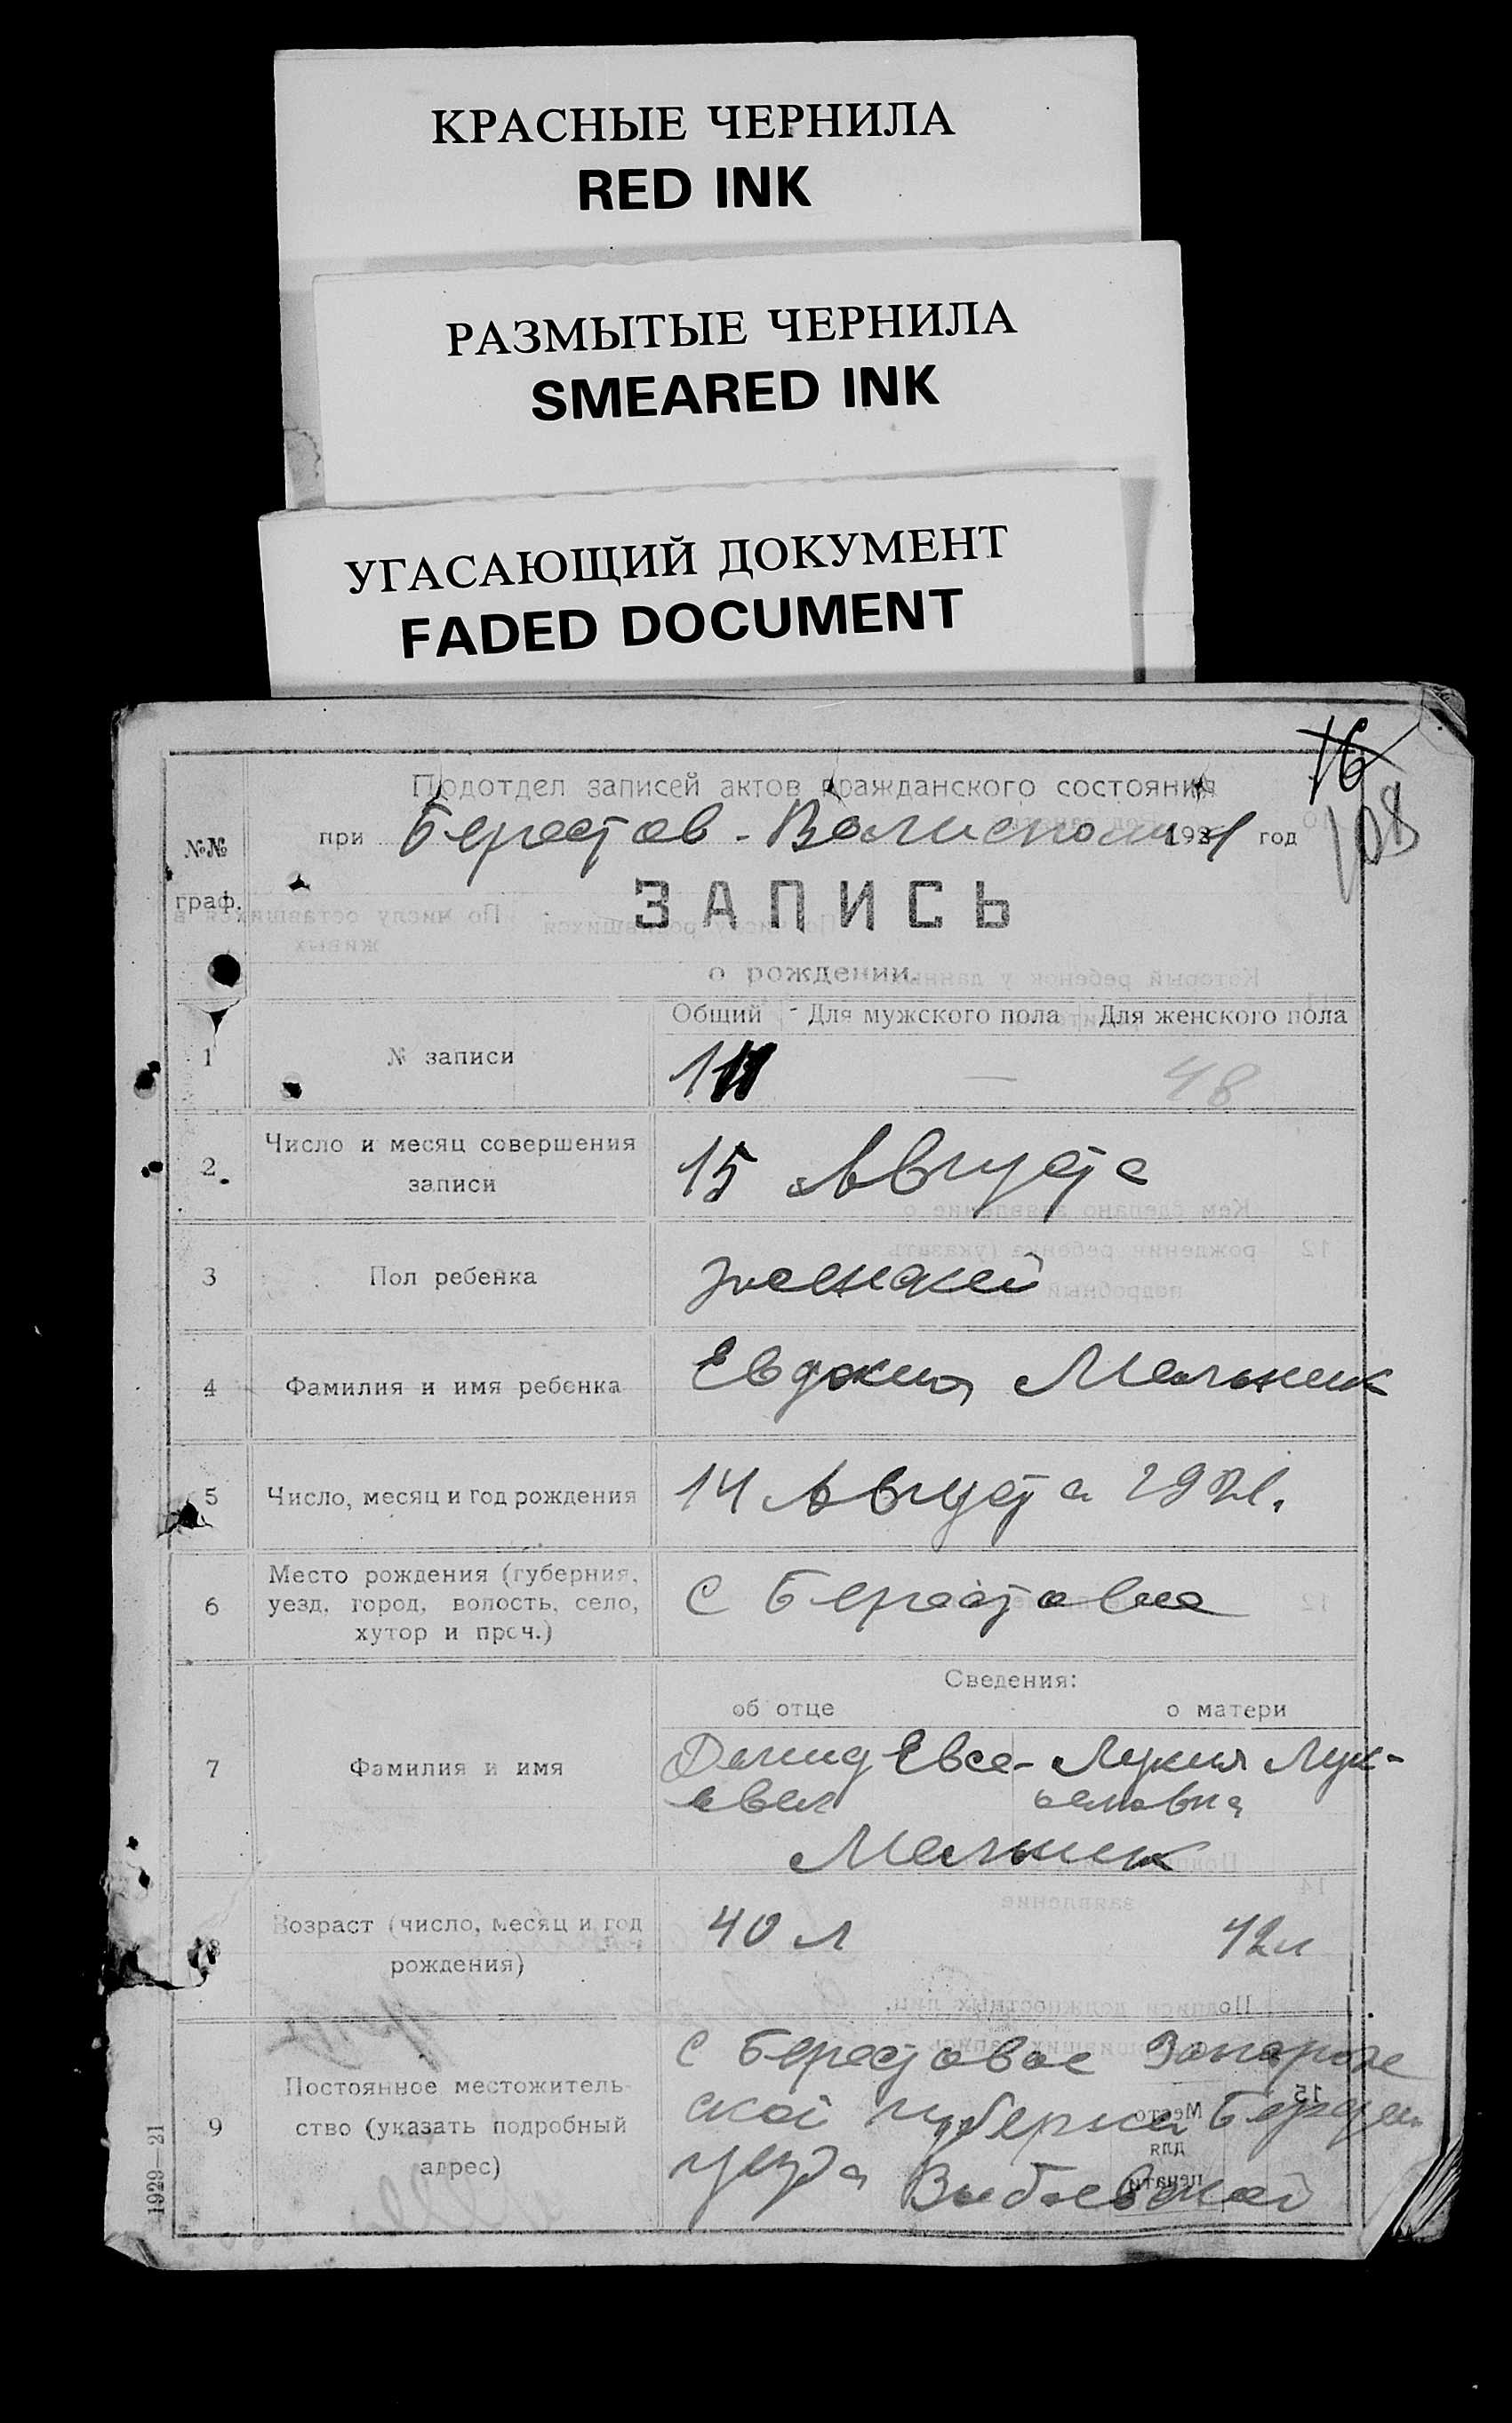 КРАСНЫЕ ЧЕРНИЛА
RED INK
РАЗМЫТЫЕ ЧЕРНИЛА
SMEARED INK
УГАСАЮЩИЙ ДОКУМЕНТ
FADED DOCUMENT
16
108
Подотдел записей актов гражданского состояния
при Берестов - Волисполк 1921 год
№№
граф.
ЗАПИСЬ
о рождении.
Общий Для мужского пола Для женского пола
1 № записи 111 — 48
2 Число и месяц совершения
записи
15 Августа
3 Пол ребенка женский
4 Фамилия и имя ребенка Евдокия Мельник
5 Число, месяц и год рождения 14 Августа 1921.
6 Место рождения (губерния,
уезд, город, волость, село,
хутор и проч.)
с Берестовое
Сведения:
об отце о матери
7 Фамилия и имя
Данид Евсе- Лукия Лук-
евич
Мельник
8 Возраст (число, месяц и год
рождения)
40 л 42 л
9 Постоянное местожитель-
ство (указать подробный
адрес)
с Берестовое Запорож
ской губернии Бердян
уезда
1929—21